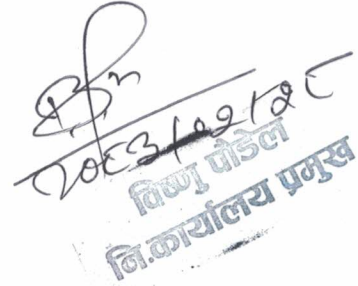 २०८३/०२/२८
विष्णु पौडेल
नि.कार्यालय प्रमुख